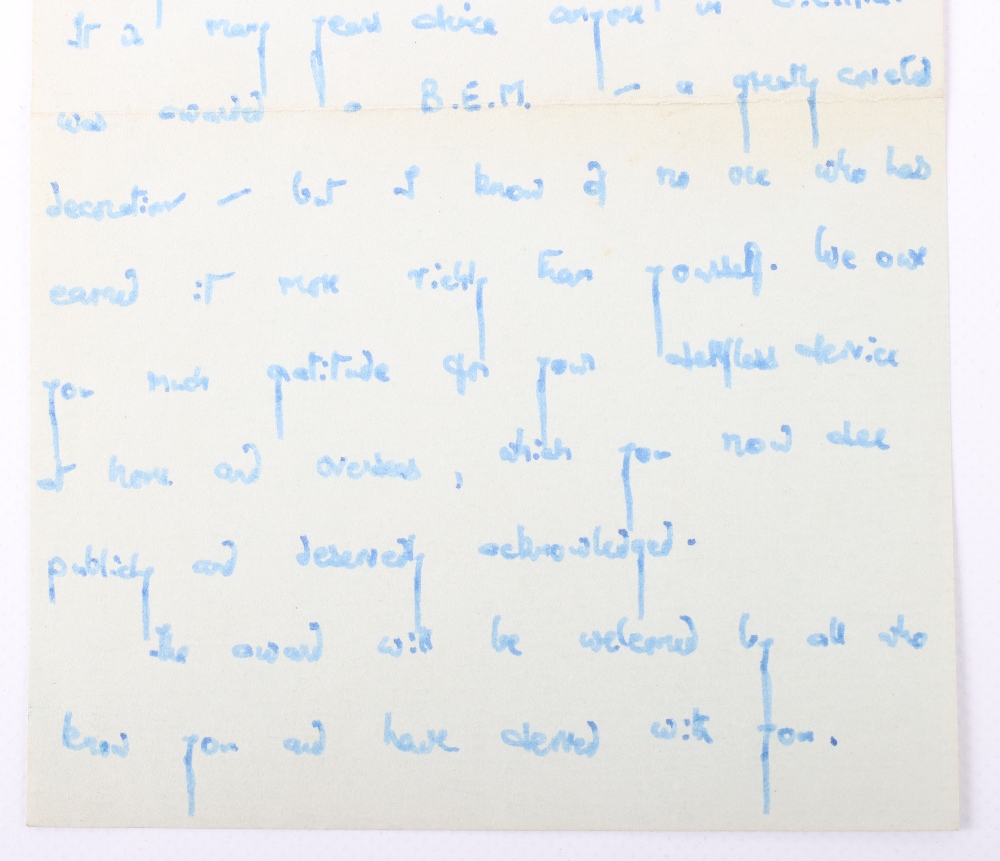 It is many years since anyone in
was awarded a B.E.M. – a greatly coveted
decoration – but I know of no one who has
earned it more richly than yourself. We owe
you much gratitude for your selfless service
at home and overseas, which you now see
publicly and deservedly acknowledged.
The award will be welcomed by all who
know you and have served with you.